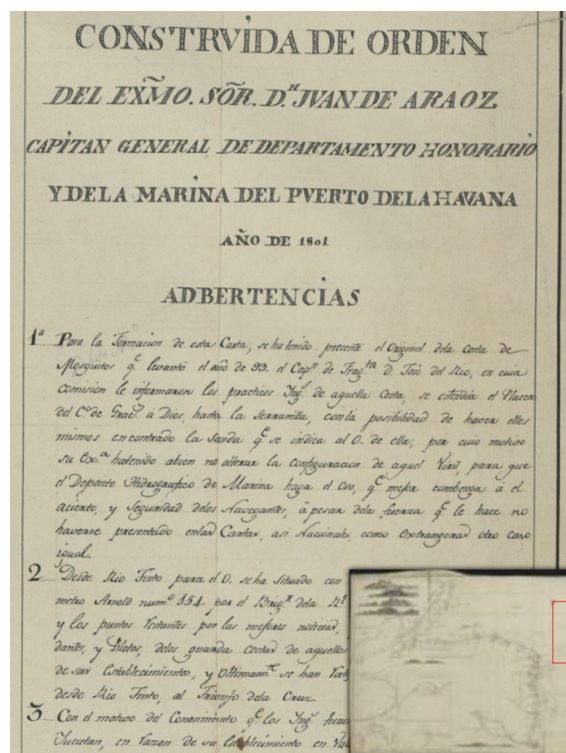 CONSTRVIDA DE ORDEN
DEL EXM̃O. SÕR. D.ⁿ JVAN DE ARAOZ
CAPITAN GENERAL DE DEPARTAMENTO HONORARIO
Y DE LA MARINA DEL PVERTO DE LA HAVANA
AÑO DE 1801
ADBERTENCIAS
1ª Para la Formacion de esta Carta, se ha tenido presente el Original dela costa de
Mosquitos q.ᵉ levantó el año de 93. el Cap.ⁿ de Frag.ᵗᵃ D. José del Rio, en cuia
comision le informaron los practicos Ing.ˢ de aquella Costa, se estendia el Placer
del C.º de Grac.ˢ á Dios, hasta la Serranilla, con la posibilidad de haver ellos
mismos encontrado la Sonda q.ᵉ se indica al O. de ella; por cuio motivo
su Ex.ª ha tenido abien no alterar la configuracion de aquel Veril, para que
el Deposito Hidrografico de Marina haga el Oso, q.ᵉ mejor combenga a el
acierto, y Seguridad delos Navegantes, á pesar dela fuerza q.ᵉ le hace no
haverse presentado en las Cartas, asi Nacionales como Extrangeras otro caso
igual.
2 Desde Rio Tinto para el O. se ha Situado con
metro Arnold num.º 354 por el Brig.ʳ dela R.ˡ
y los puntos Restantes por las mejores noticias,
dantes, y Pilotos, delos guarda costas de aquellos
de sus Establecimientos, y Ultimam.ᵗᵉ se han
desde Rio Tinto, al Triunfo dela Cruz
3 Con el motivo del Conocimiento q.ᵉ los Ing.ˢ
Yucatan, en razon de su Establecimiento en